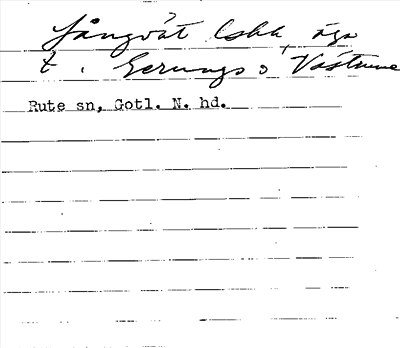 Långvät Lskh, äga
t. Gerungs o Västrume
Rute sn, Gotl. N. hd.